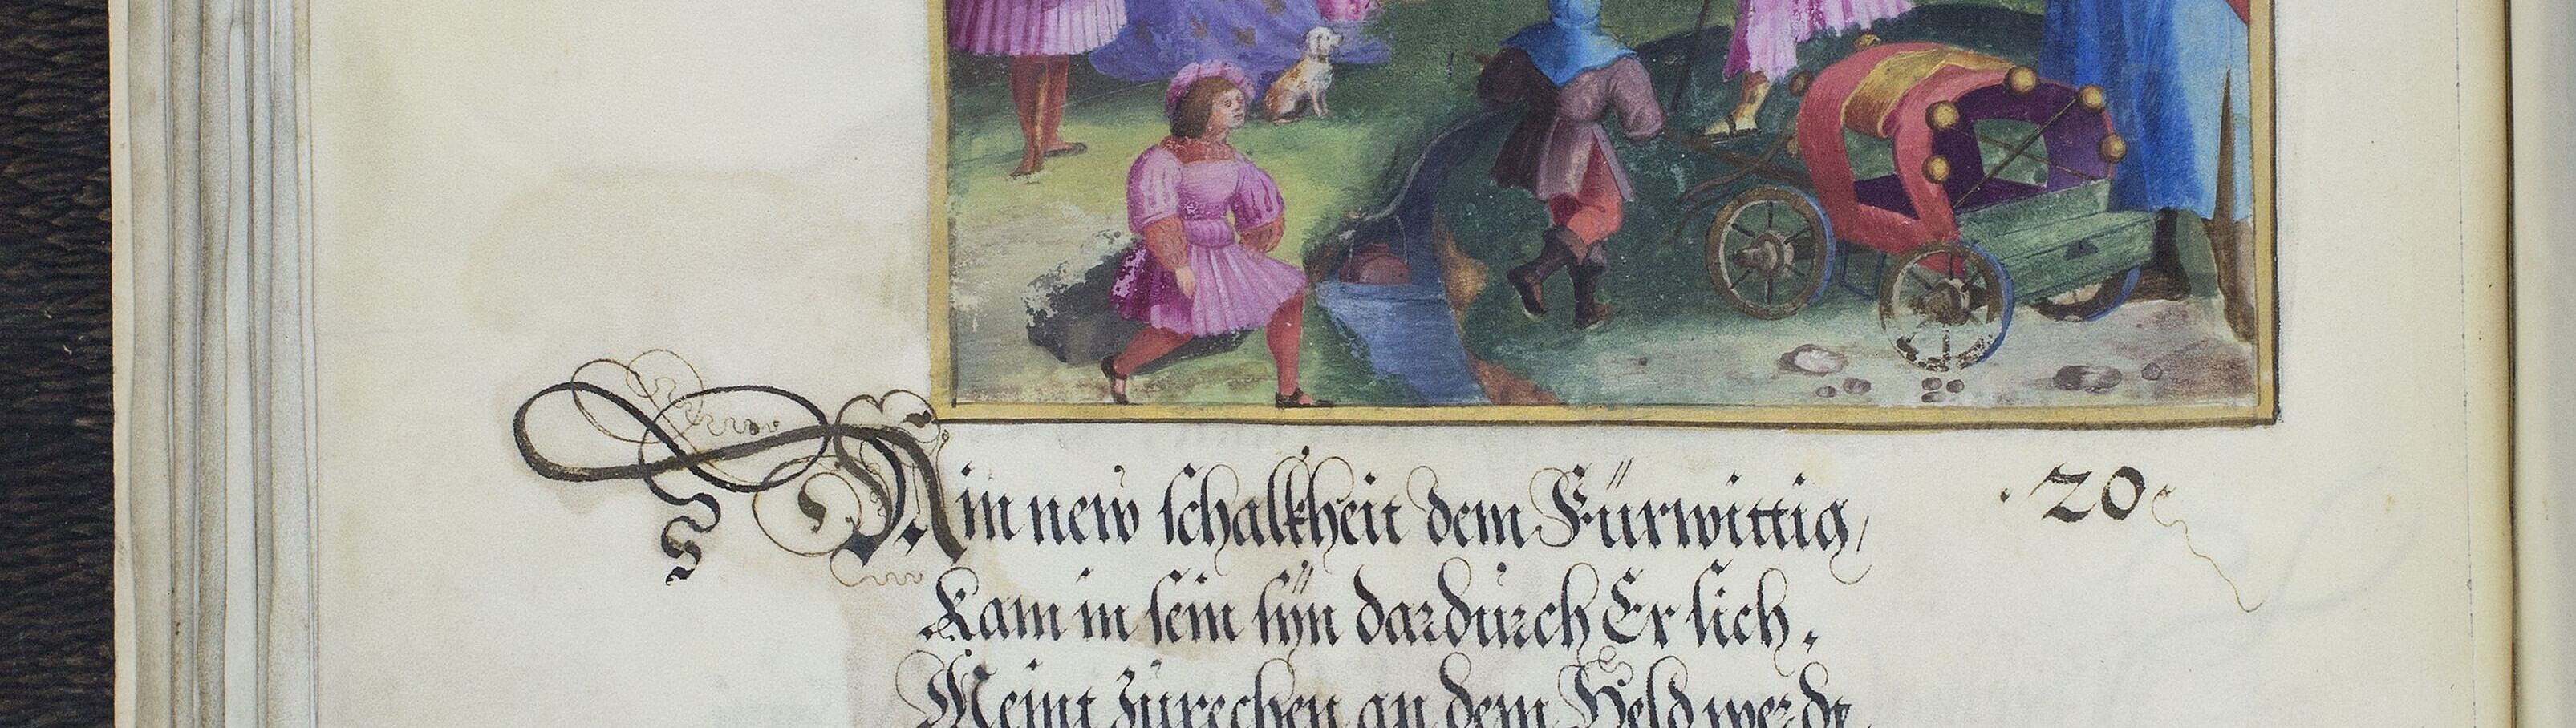 Ain new schalkheit dem Fürwittig / · 20
Kam in sein sÿn dardurch Er sich .
Meint zürechen an dem Held werdt